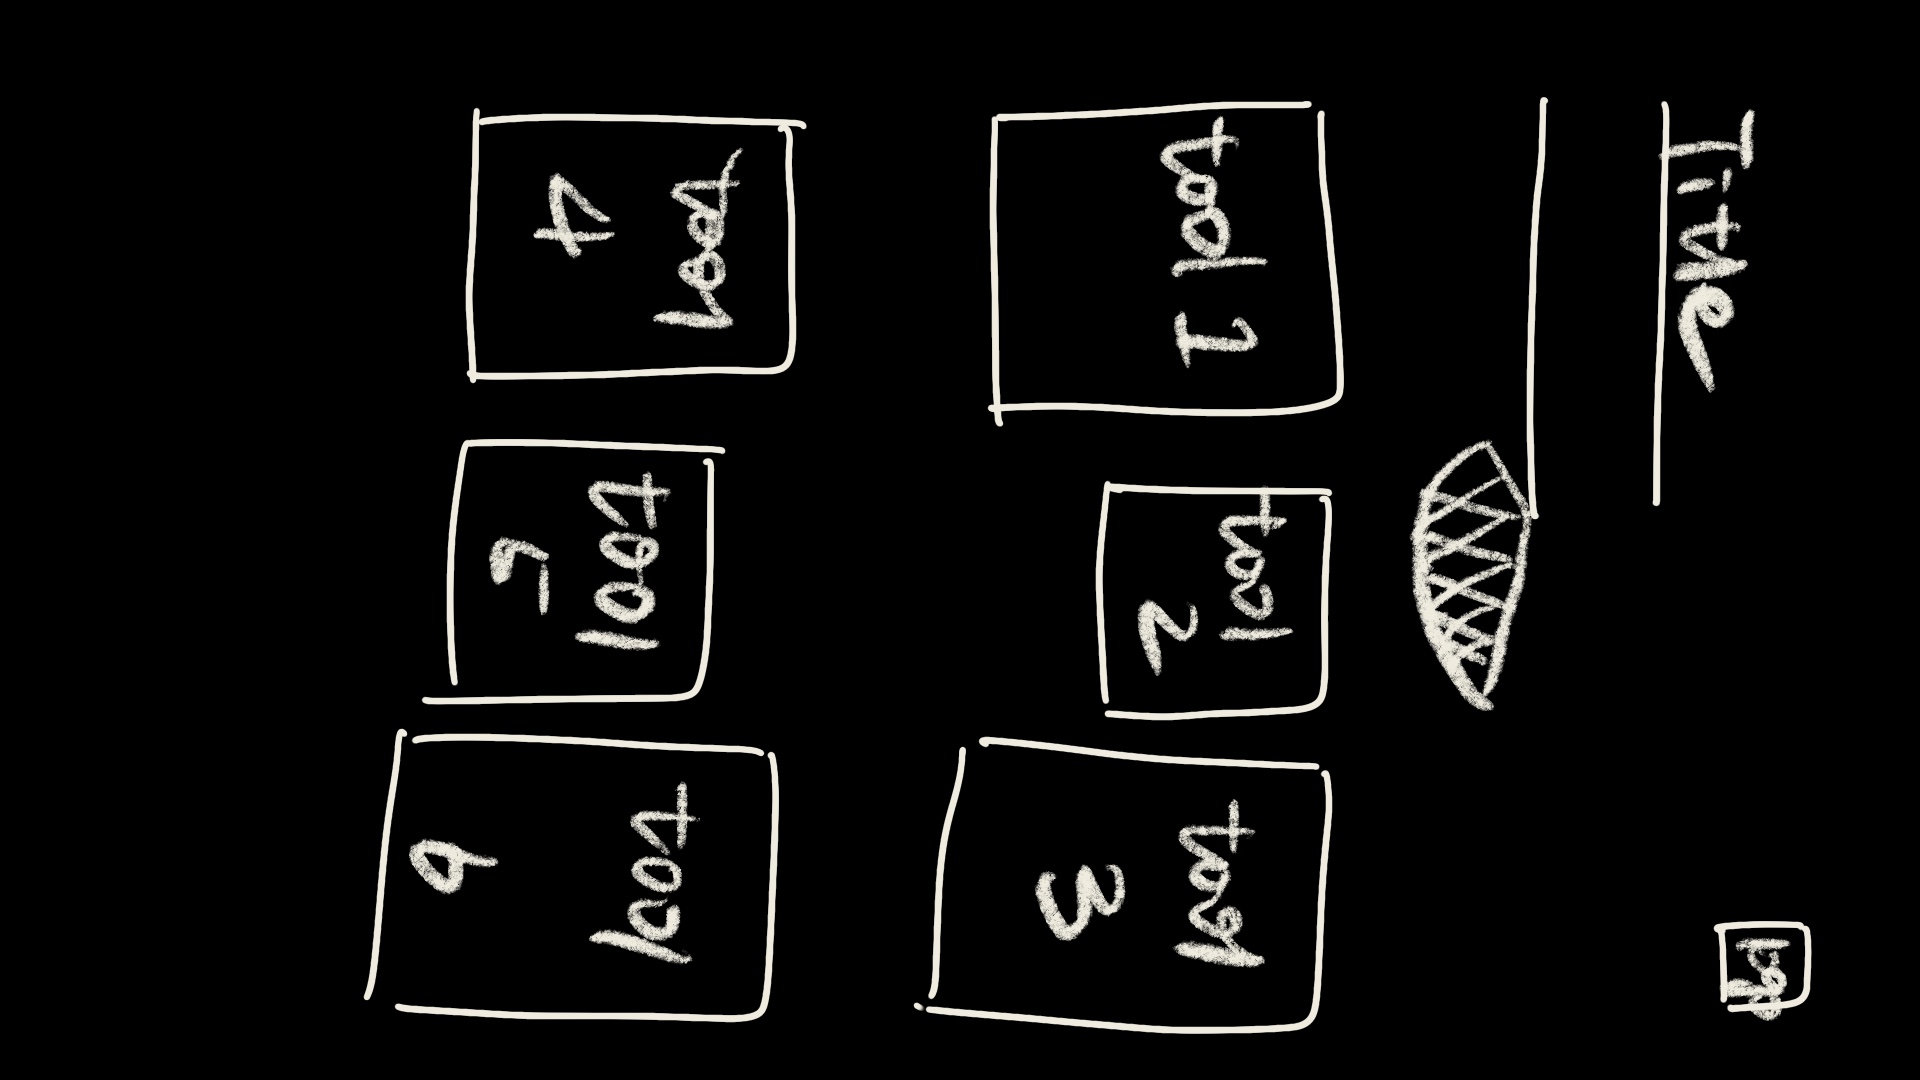 Title
tool 1
tool
2
tool
3
tool
4
tool
5
tool
6